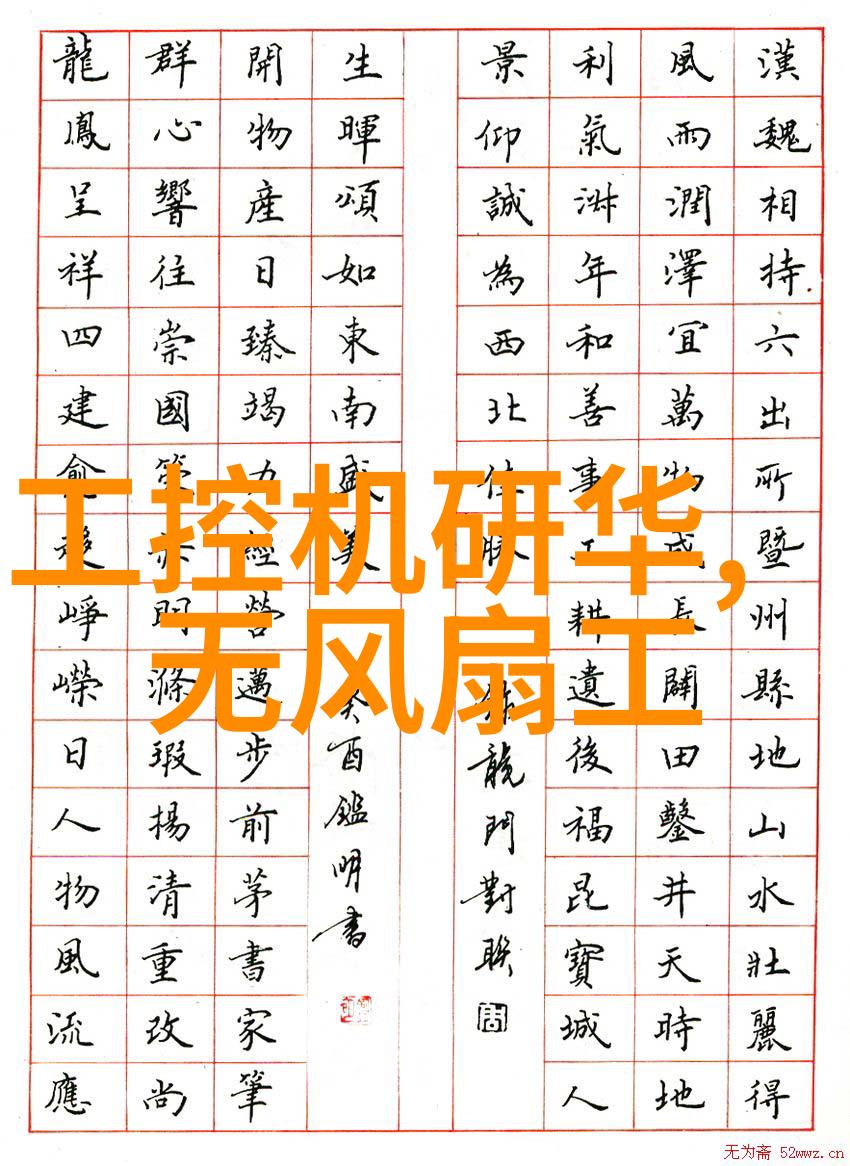 漢魏相持六出所暨州縣地山水壯麗得
風雨潤澤宜萬物成長闢田鑿井天時地
利氣淑年和善事工耕遺後福昆寶城人
景仰誠為西北佳勝
錄龍門對聯
生暉頌如東南盛美
癸酉鑑明書
開物產日臻竭力經營邁步前茅書家筆
群心響往崇國亦明滌瑕揚清重改尚
龍鳳呈祥四建愈崢嶸日人物風流應
工控机研华,
无风扇工
无为斋 52wwz.cn